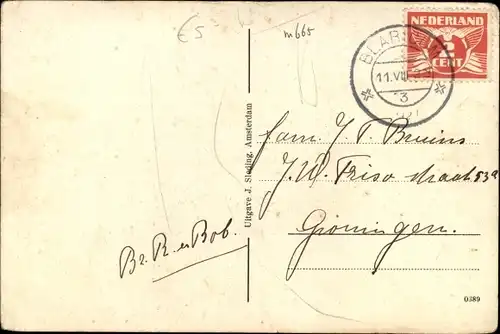 €5
m665
NEDERLAND
2
CENT
BLAR
11.VII
3
Uitgave J. Sleding, Amsterdam
Fam. J. T. Bruins
J. W. Friso straat 53a
Groningen.
Br. R. en Bob.
0389